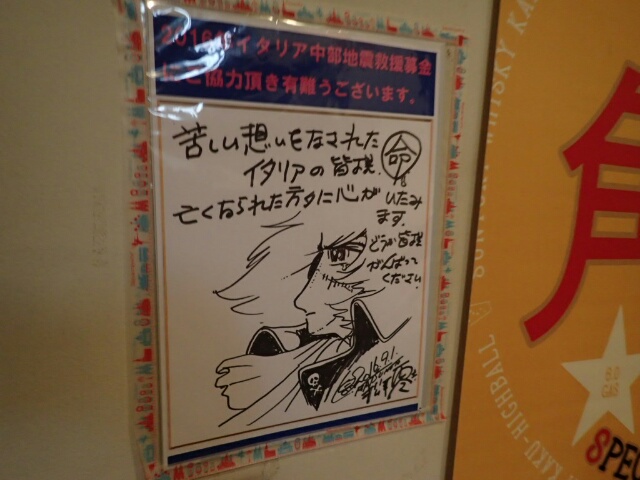 2016年イタリア中部地震救援募金
にご協力頂き有難うございます。
苦しい想いをなされた
イタリアの皆様.
亡くなられた方々に心が
いたみ
ます.
命
どうか皆様
がんばって
ください
2016.9.1
角
SPEC
WHISKY KA
SUNTORY
KAKU-HIGHBALL